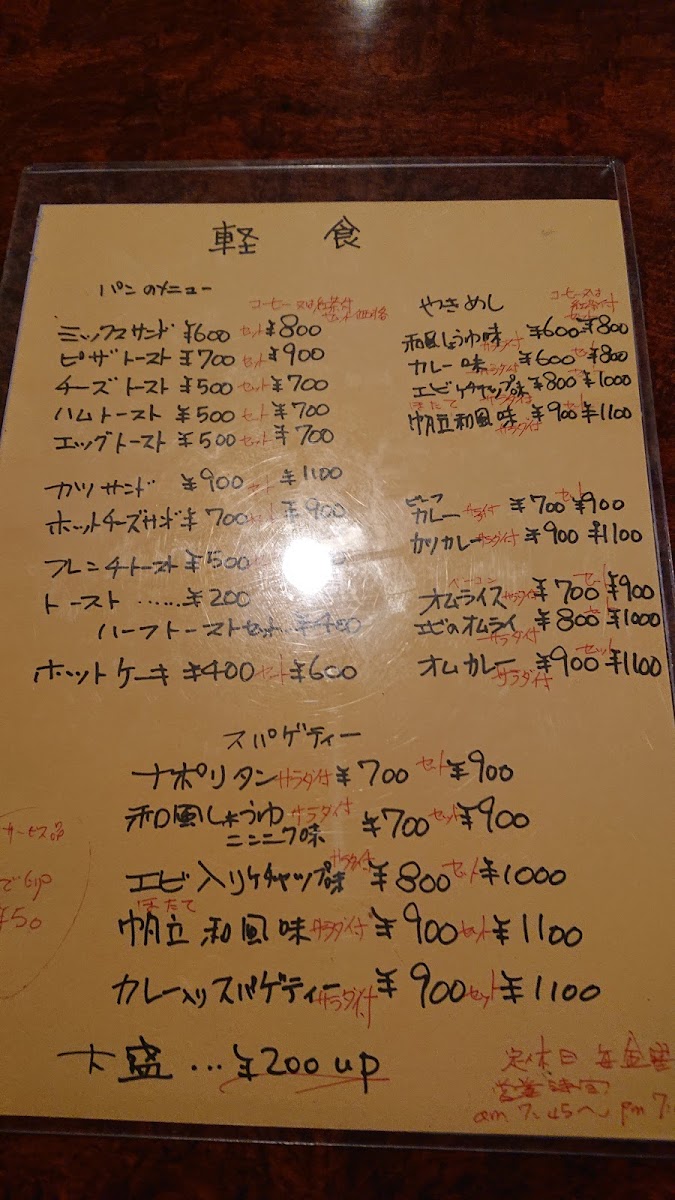 軽食
パンのメニュー
コーヒー又は紅茶付
ミックスサンド ¥600 セット ¥800
ピザトースト ¥700 セット ¥900
チーズトースト ¥500 セット ¥700
ハムトースト ¥500 セット ¥700
エッグトースト ¥500 セット ¥700
カツサンド ¥900 セット ¥1100
ホットチーズサンド ¥700 セット ¥900
フレンチトースト ¥500
トースト ……¥200
ハーフトーストセット…¥400
ホットケーキ ¥400 セット ¥600
やきめし
コーヒー又は
紅茶付
セット
和風しょうゆ味 サラダ付 ¥600 ¥800
カレー味 サラダ付 ¥600 セット ¥800
エビケチャップ味 ¥800 ¥1000
ほたて
帆立和風味 サラダ付 ¥900 セット ¥1100
ビーフ
カレー サラダ付 ¥700 セット ¥900
カツカレー サラダ付 ¥900 ¥1100
ベーコン
オムライス サラダ付 ¥700 セット ¥900
エビのオムライ サラダ付 ¥800 セット ¥1000
オムカレー サラダ付 ¥900 セット ¥1100
スパゲティー
ナポリタン サラダ付 ¥700 セット ¥900
和風しょうゆ サラダ付 ¥700 セット ¥900
ニンニク味
エビ入りケチャップ味 サラダ付 ¥800 セット ¥1000
ほたて
帆立和風味 サラダ付 ¥900 セット ¥1100
カレー入りスパゲティー サラダ付 ¥900 セット ¥1100
サービス品
で6up
¥50
大盛…¥200up
定休日 毎金曜
営業時間
am7:45〜pm7: